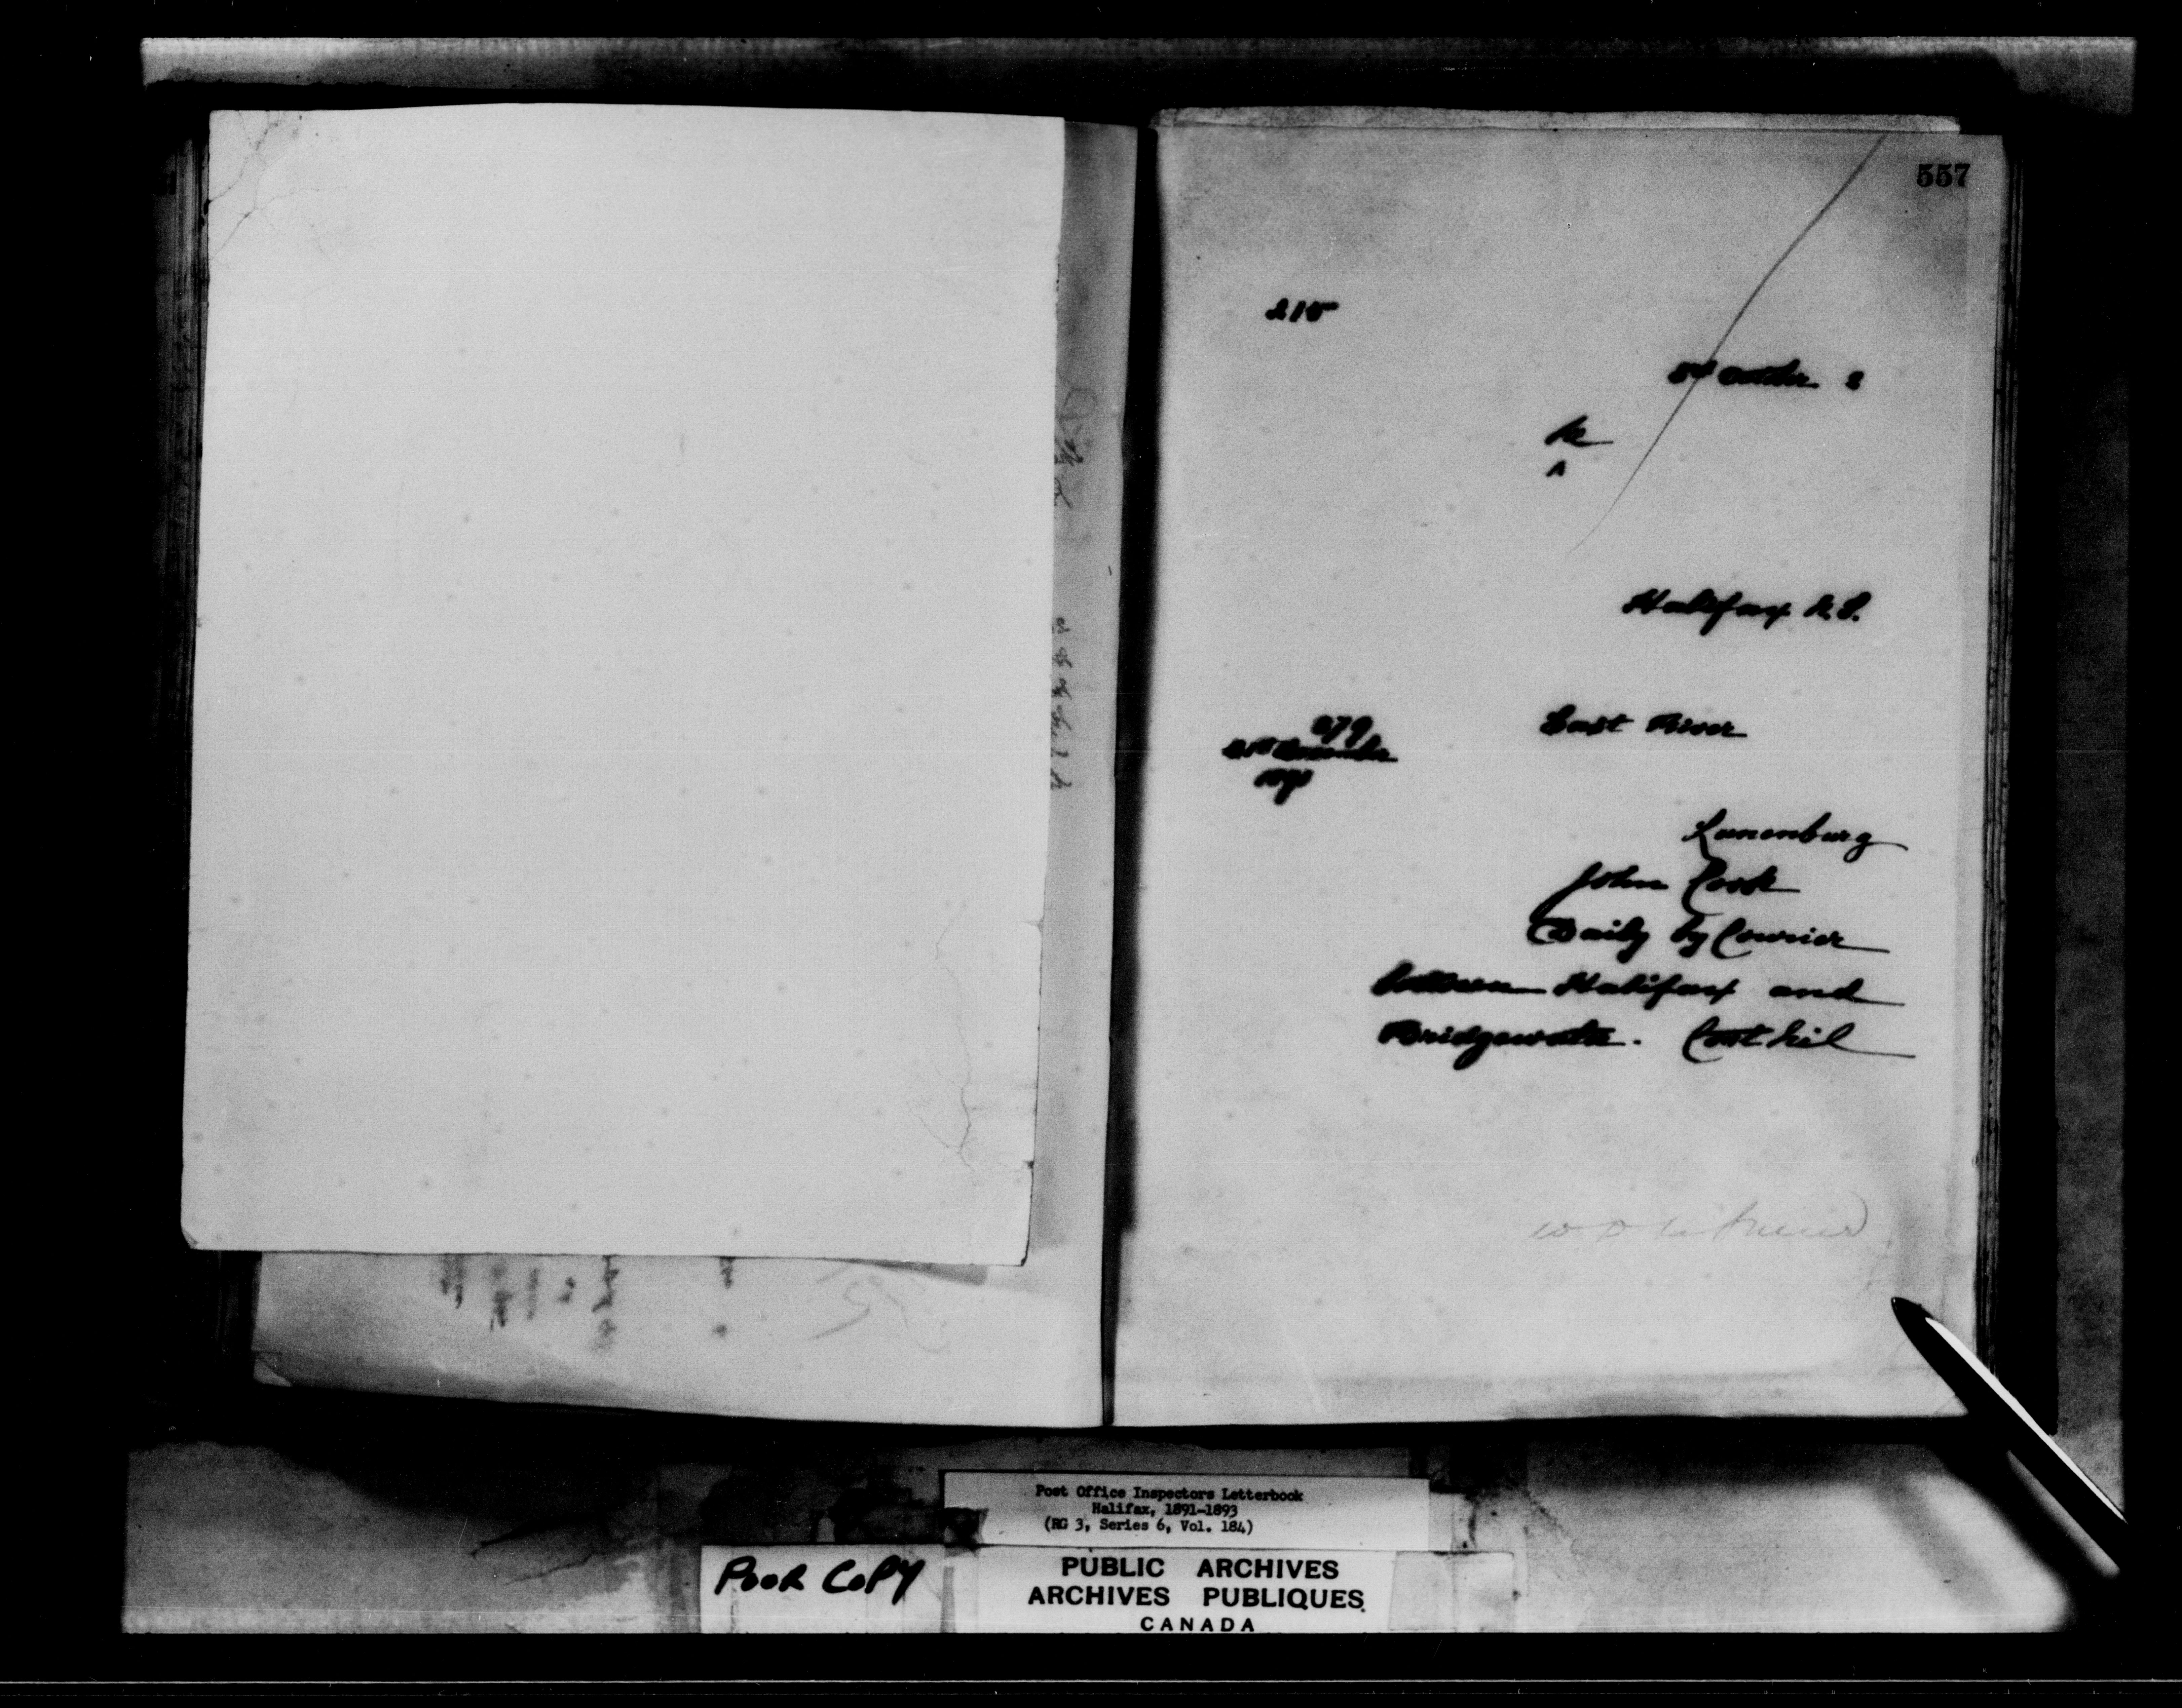 557
215
5th October 2
Halifax N.S.
East River
279
21st December
1891
Lunenburg
John Cook
Daily by Courier
between Halifax and
Bridgewater. Cost Nil
Post Office Inspectors Letterbook
Halifax, 1891-1893
(RG 3, Series 6, Vol. 184)
POOR COPY
PUBLIC ARCHIVES
ARCHIVES PUBLIQUES
CANADA